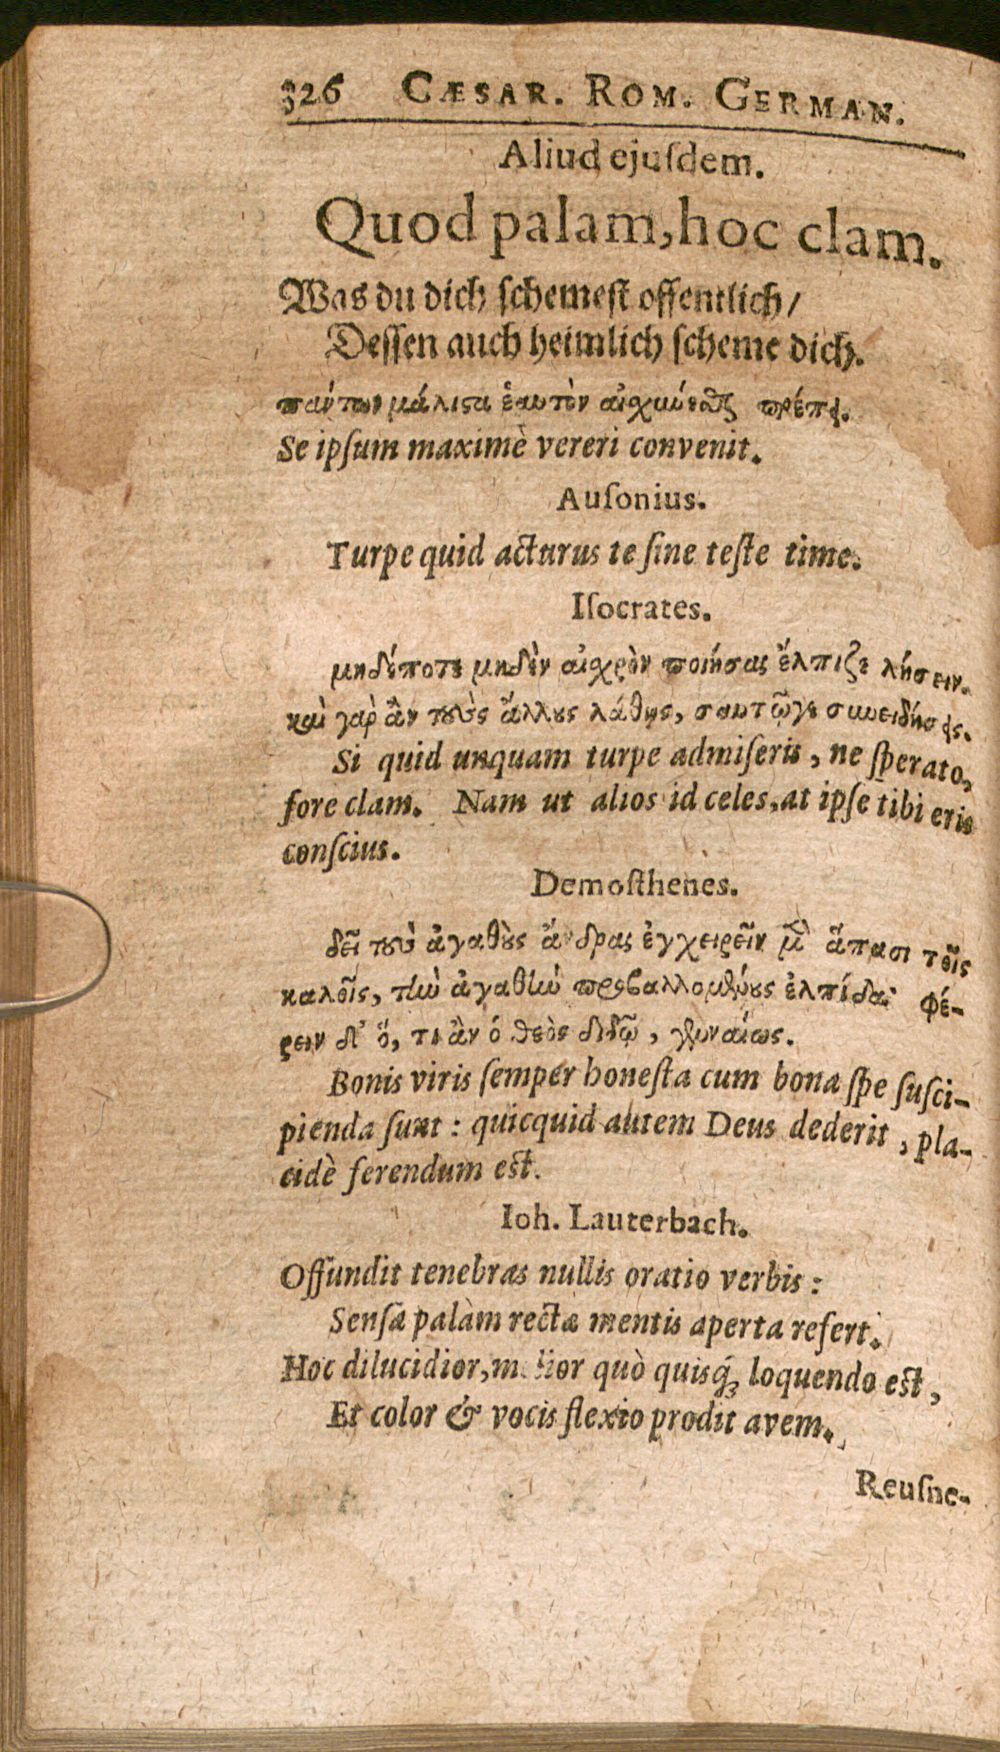 326 CÆSAR. ROM. GERMAN.
Aliud ejuſdem.
Quod palam, hoc clam.
Was du dich ſchemeſt offentlich/
Deſſen auch heimlich ſcheme dich.
πάντων μάλιστα ἑαυτὸν αἰσχύνεσθαι πρέπει.
Se ipſum maximè vereri convenit.
Auſonius.
Turpe quid acturus te ſine teſte time.
Iſocrates.
μηδέποτε μηδὲν αἰσχρὸν ποιήσας ἔλπιζε λήσειν.
καὶ γὰρ ἂν τοὺς ἄλλους λάθῃς, σαυτῷγε συνειδήσεις.
Si quid unquam turpe admiſeris, ne ſperato,
fore clam. Nam ut alios id celes, at ipſe tibi eris
conſcius.
Demoſthenes.
δεῖ τοὺ ἀγαθοὺς ἄνδρας ἐγχειρεῖν μὲν ἅπασι τοῖς
καλοῖς, τὴν ἀγαθὴν προβαλλομένους ἐλπίδα φέ-
ρειν δ' ὅ, τι ἂν ὁ θεὸς διδῷ, γενναίως.
Bonis viris ſemper honeſta cum bona ſpe ſuſci-
pienda ſunt: quicquid autem Deus dederit, pla-
cidè ferendum eſt.
Ioh. Lauterbach.
Offundit tenebras nullis oratio verbis:
Senſa palàm rectæ mentis aperta refert.
Hoc dilucidior, quò quisq́; loquendo eſt,
Et color & vocis flexio prodit avem.
Reuſne-